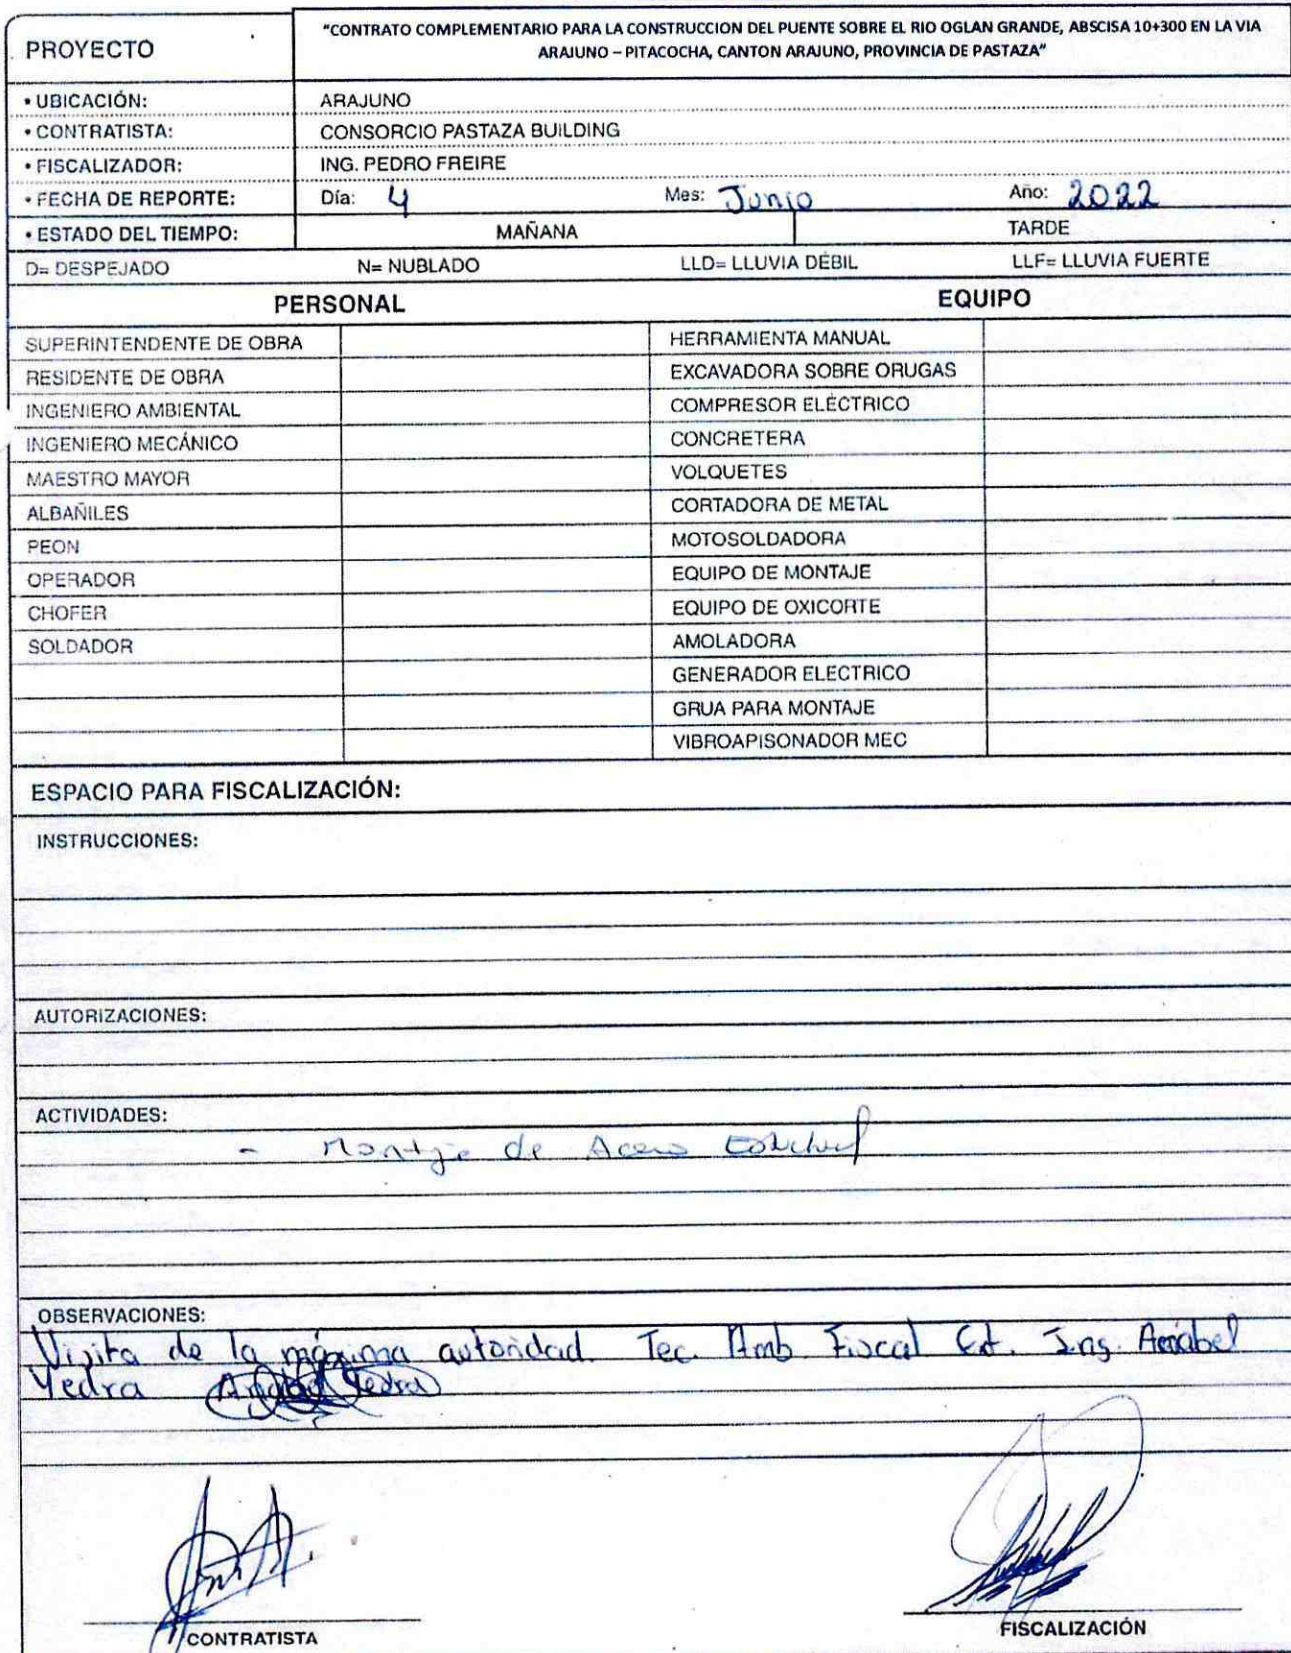 PROYECTO
"CONTRATO COMPLEMENTARIO PARA LA CONSTRUCCION DEL PUENTE SOBRE EL RIO OGLAN GRANDE, ABSCISA 10+300 EN LA VIA
ARAJUNO – PITACOCHA, CANTON ARAJUNO, PROVINCIA DE PASTAZA"
• UBICACIÓN: ARAJUNO
• CONTRATISTA: CONSORCIO PASTAZA BUILDING
• FISCALIZADOR: ING. PEDRO FREIRE
• FECHA DE REPORTE: Día: 4 Mes: Junio Año: 2022
• ESTADO DEL TIEMPO: MAÑANA TARDE
D= DESPEJADO N= NUBLADO LLD= LLUVIA DÉBIL LLF= LLUVIA FUERTE
PERSONAL EQUIPO
SUPERINTENDENTE DE OBRA HERRAMIENTA MANUAL
RESIDENTE DE OBRA EXCAVADORA SOBRE ORUGAS
INGENIERO AMBIENTAL COMPRESOR ELÉCTRICO
INGENIERO MECÁNICO CONCRETERA
MAESTRO MAYOR VOLQUETES
ALBAÑILES CORTADORA DE METAL
PEON MOTOSOLDADORA
OPERADOR EQUIPO DE MONTAJE
CHOFER EQUIPO DE OXICORTE
SOLDADOR AMOLADORA
GENERADOR ELECTRICO
GRUA PARA MONTAJE
VIBROAPISONADOR MEC
ESPACIO PARA FISCALIZACIÓN:
INSTRUCCIONES:
AUTORIZACIONES:
ACTIVIDADES:
- Montaje de Acero
OBSERVACIONES:
Visita de la máxima autoridad. Tec. Amb. Fiscal Ext. Ing. Anabel
Yedra
CONTRATISTA FISCALIZACIÓN